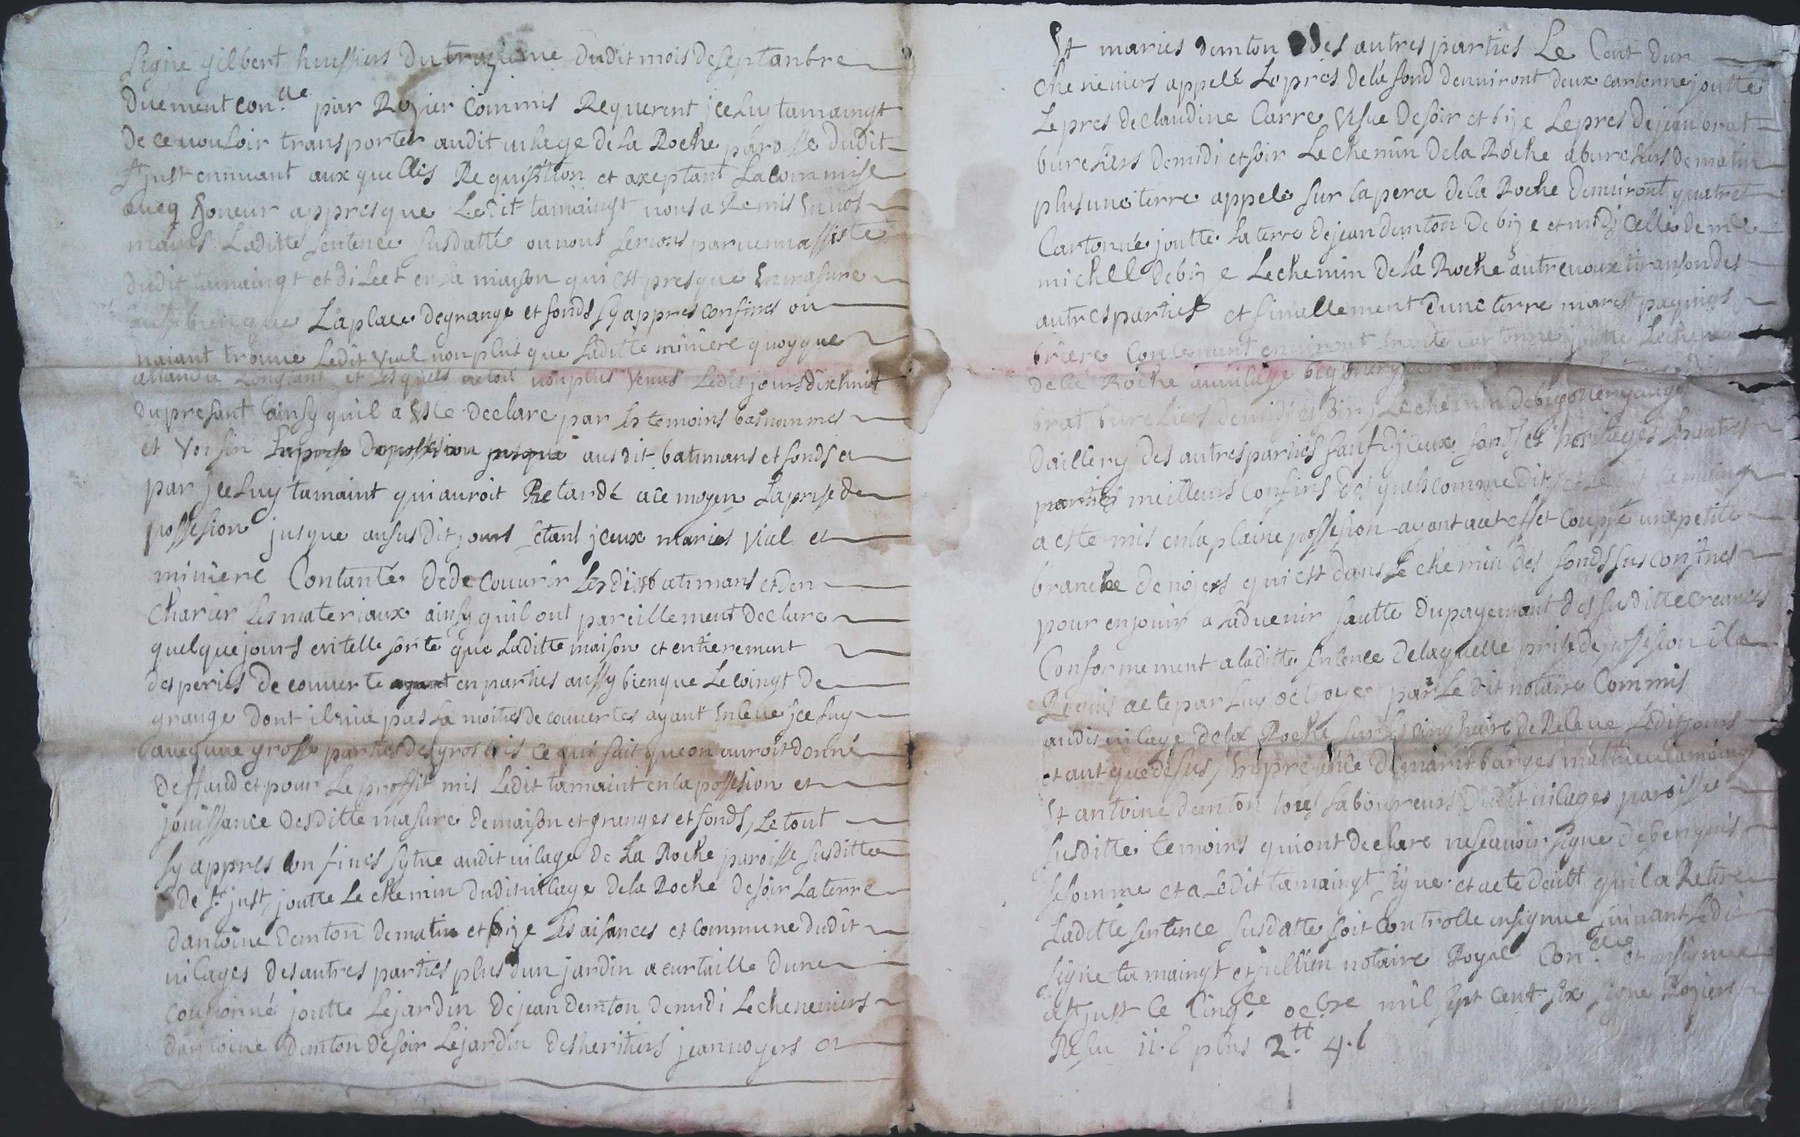 signe gilbert huissiers du trezieme dudit mois de septanbre
duement con.lle par Rozier Commis Requerent jceluy tamaingt
de ce vouloir transporter audit vilage de la Roche paroisse dudit
st just ennuant aux quelles Requisition et axeptant la commise
avecq honeur appres que Ledit tamaingt nous a Remis En nos
mains Laditte sentence susdatte ou nous serions parvenu assisté
dudit tamaingt et dileet en la maison qui est presque En masure
aussy bien que La place de grange et fonds sy appres confines ou
naiant trouve Ledit Vial non plus que Laditte miniere quoyque
et lesquels netoit non plus Venus Ledit jours dixhuit
du presant ainsy quil a Este declare par les temoins bas nommes
et Voisin La prise de possesion jusque aus dit batimans et fonds
par jceluy tamaint qui auroit Retardé a ce moyen La prise de
possesion jusque au susdit jours Etant jceux maries Vial et
miniere Contante de decouvrir Les dits batimans et den
charier les materiaux ainsy quil ont pareillement declare
quelque jours en telle sorte que Laditte maison et entierement
desperies de couverte en parties aussy bien que Le coingt de
grange dont il nia pas la moities de couvertes ayant Enleve jceluy
avecq une grosse parties des gros bois ce qui fait que on auroit donné
deffaud et pour Le proffit mis Ledit tamaint en la possesion et
jouissance desditte masure de maison et granges et fonds, Le tout
sy appres Confines sytue audit vilage de La Roche paroisse susditte
de st just, joutte Le chemin dudit vilage de la Roche de soir La terre
dantoine demton de matin et bize Les aisances et commune dudit
vilages des autres parties plus dun jardin a eurtaille dune
couponné joutte Le jardin de jean demton de midi Le chenevier
dantoine demton de soir Le jardin des heritiers jean noyers et
st maries demton des autres parties Le Cout dun
cheneviers appelé Le pres de la fond denviront deux cartonne joutte
Le pres de claudine Carre Vesve de soir et bize Le pres de jean brat
bureliers de midi et soir Le chemin de la Roche a bureliers de matin
plus une terre appele sur la pera de la Roche denviront quatre
Cartonné joutte La terre de jean demton de bize et midi celle de me
michel de bize Le chemin de la Roche autrevoux tirant son des
autres parties et finallement dune terre mares paquiges
brière Contenant environt trante cartonne joutte Le chemin
de la Roche au vilage
brat bureliers de midi et soir, Le chemin de
daillery des autres parties sauf djceux fonds et heritages
parties meilleurs confins des quels comme dit
a este mis en la plaine possesion ayant a cet effet couppé une petite
branche de nojers qui est dans Le chemin des fonds sus confines
pour en jouir a Ladvenir fautte du payement des susditte creances
Conformement a laditte sentence de laquelle prise de possesion il a
Requis acte par Luy octroyer par Le dit notaire Commis
audit vilage de La Roche sur Les cinq heure de Releve Ledit jours
et ant que desus, En presence de marit barges mathieu tamaingt
st antoine demton tous laboureurs dudit vilages paroisse
susditte temoins qui ont declare ne scavoir signe de ce enquis
et somme et a Ledit tamaingt signe et acte doutt quil a Retire
Laditte sentence susdatte soit controlle ensignue suivant Ledit
signe tamaingt et jullien notaire Royal Con.lle et ensignue
a st just ce cinq.e oc.bre mil sept cent six signe Roziers
Resu 11.s plus 2.tt 4.s